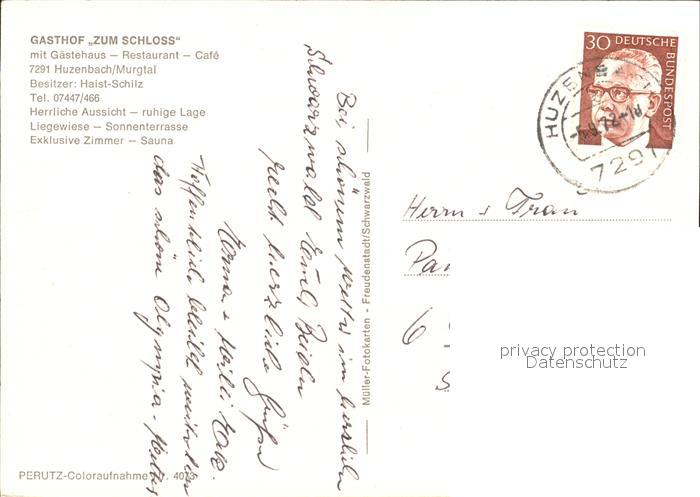 GASTHOF „ZUM SCHLOSS"
mit Gästehaus – Restaurant – Café
7291 Huzenbach/Murgtal
Besitzer: Haist-Schilz
Tel. 07447/466
Herrliche Aussicht – ruhige Lage
Liegewiese – Sonnenterrasse
Exklusive Zimmer – Sauna
Bei schönem Wetter im herrlichen
Schwarzwald
recht herzliche Grüße
Hoffentlich bleibt weiterhin
das schöne Olympia-Wetter
Müller-Fotokarten - Freudenstadt/Schwarzwald
PERUTZ-Coloraufnahme
30 DEUTSCHE
BUNDESPOST
7291
Herrn + Frau
6
privacy protection
Datenschutz